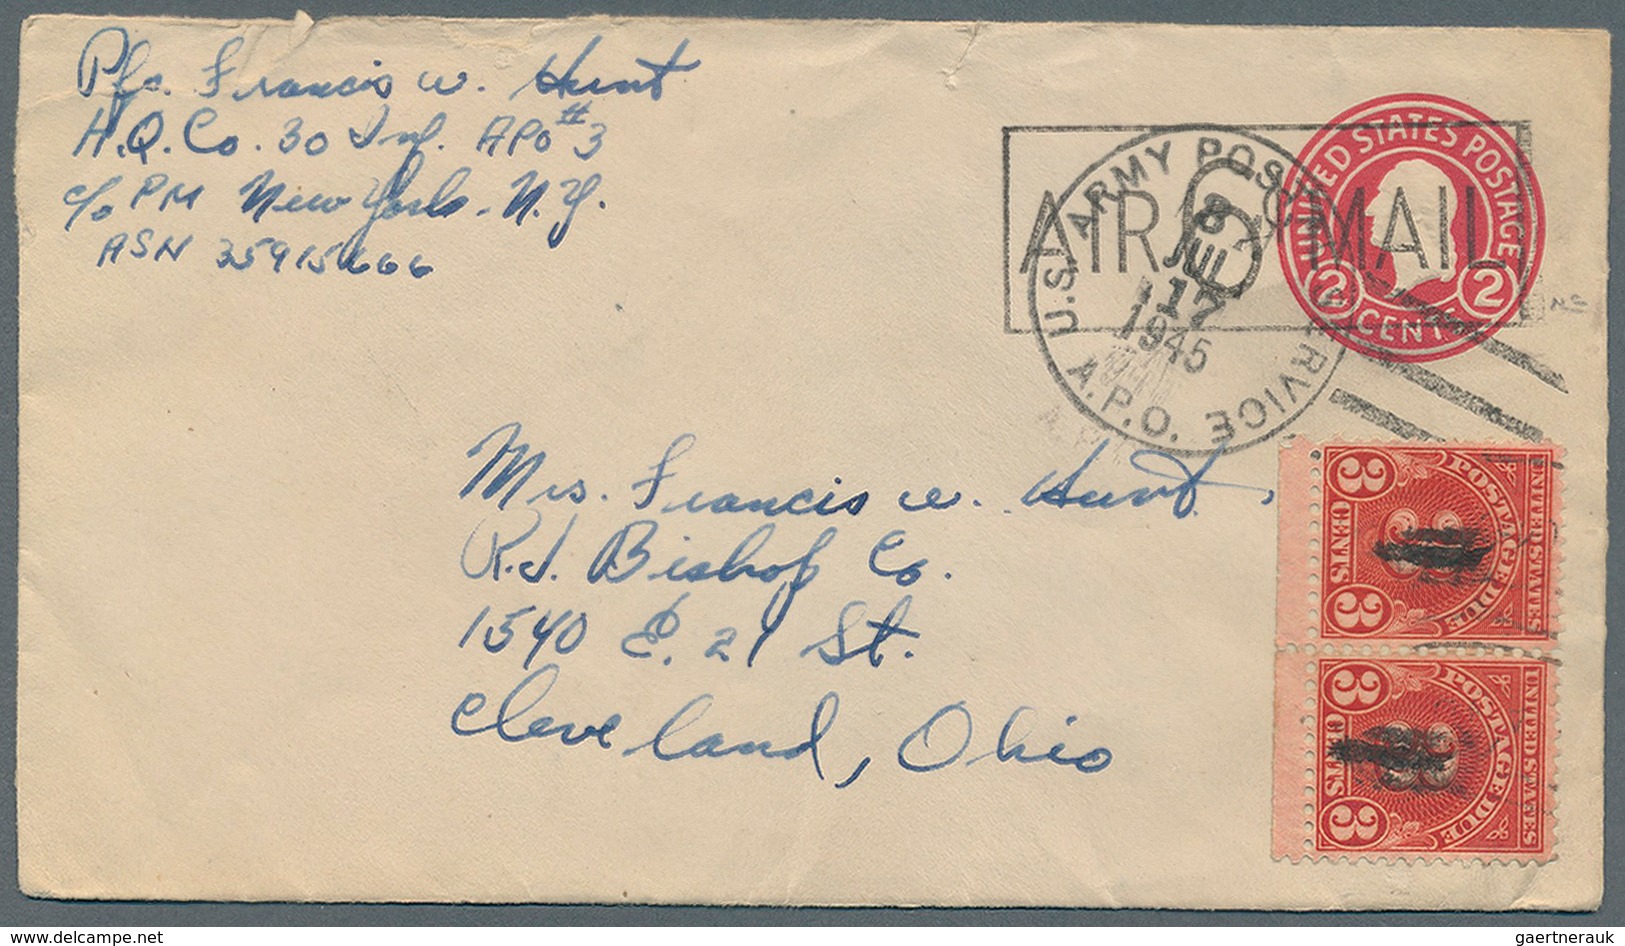 Pfc. Francis W. Hunt
H.Q. Co. 30 Inf. APO #3
c/o PM New York. N.Y.
ASN 35915666
UNITED STATES POSTAGE
2 CENTS 2
AIR MAIL
6
U.S. ARMY POSTAL SERVICE
8
JUL
17
1945
A.P.O.
Mrs. Francis W. Hunt
R.J. Bishop Co.
1540 E. 21 St.
Cleveland, Ohio
UNITED STATES
POSTAGE DUE
3 CENTS 3
UNITED STATES
POSTAGE DUE
3 CENTS 3
gaertnerauk